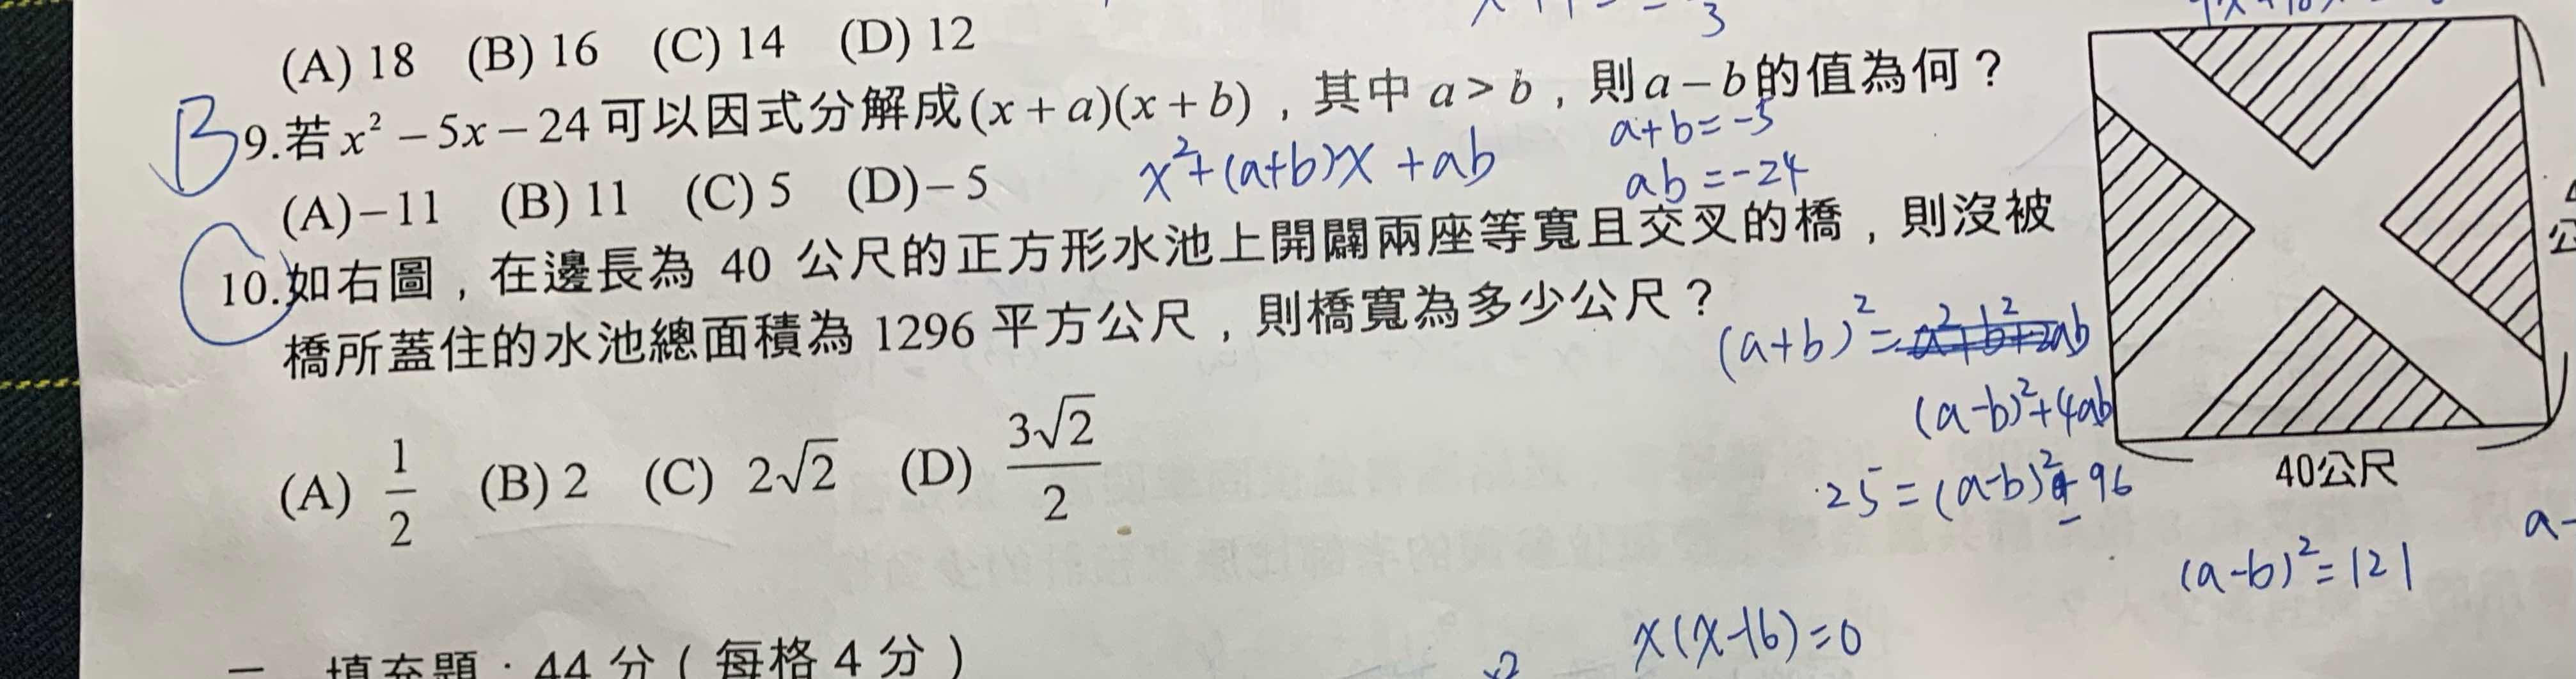 (A) 18 (B) 16 (C) 14 (D) 12
B 9.若 x² − 5x − 24 可以因式分解成(x + a)(x + b)，其中 a > b，則 a − b 的值為何？
a+b=-5
x²+(a+b)x+ab
ab=-24
(A) − 11 (B) 11 (C) 5 (D) − 5
10.如右圖，在邊長為 40 公尺的正方形水池上開闢兩座等寬且交叉的橋，則沒被
橋所蓋住的水池總面積為 1296 平方公尺，則橋寬為多少公尺？
(A) 1/2 (B) 2 (C) 2√2 (D) 3√2/2
(a+b)²=
(a-b)²+4ab
25=(a-b)²-96
(a-b)²=121
40公尺
x(x-16)=0
二、填充題：44 分（每格 4 分）